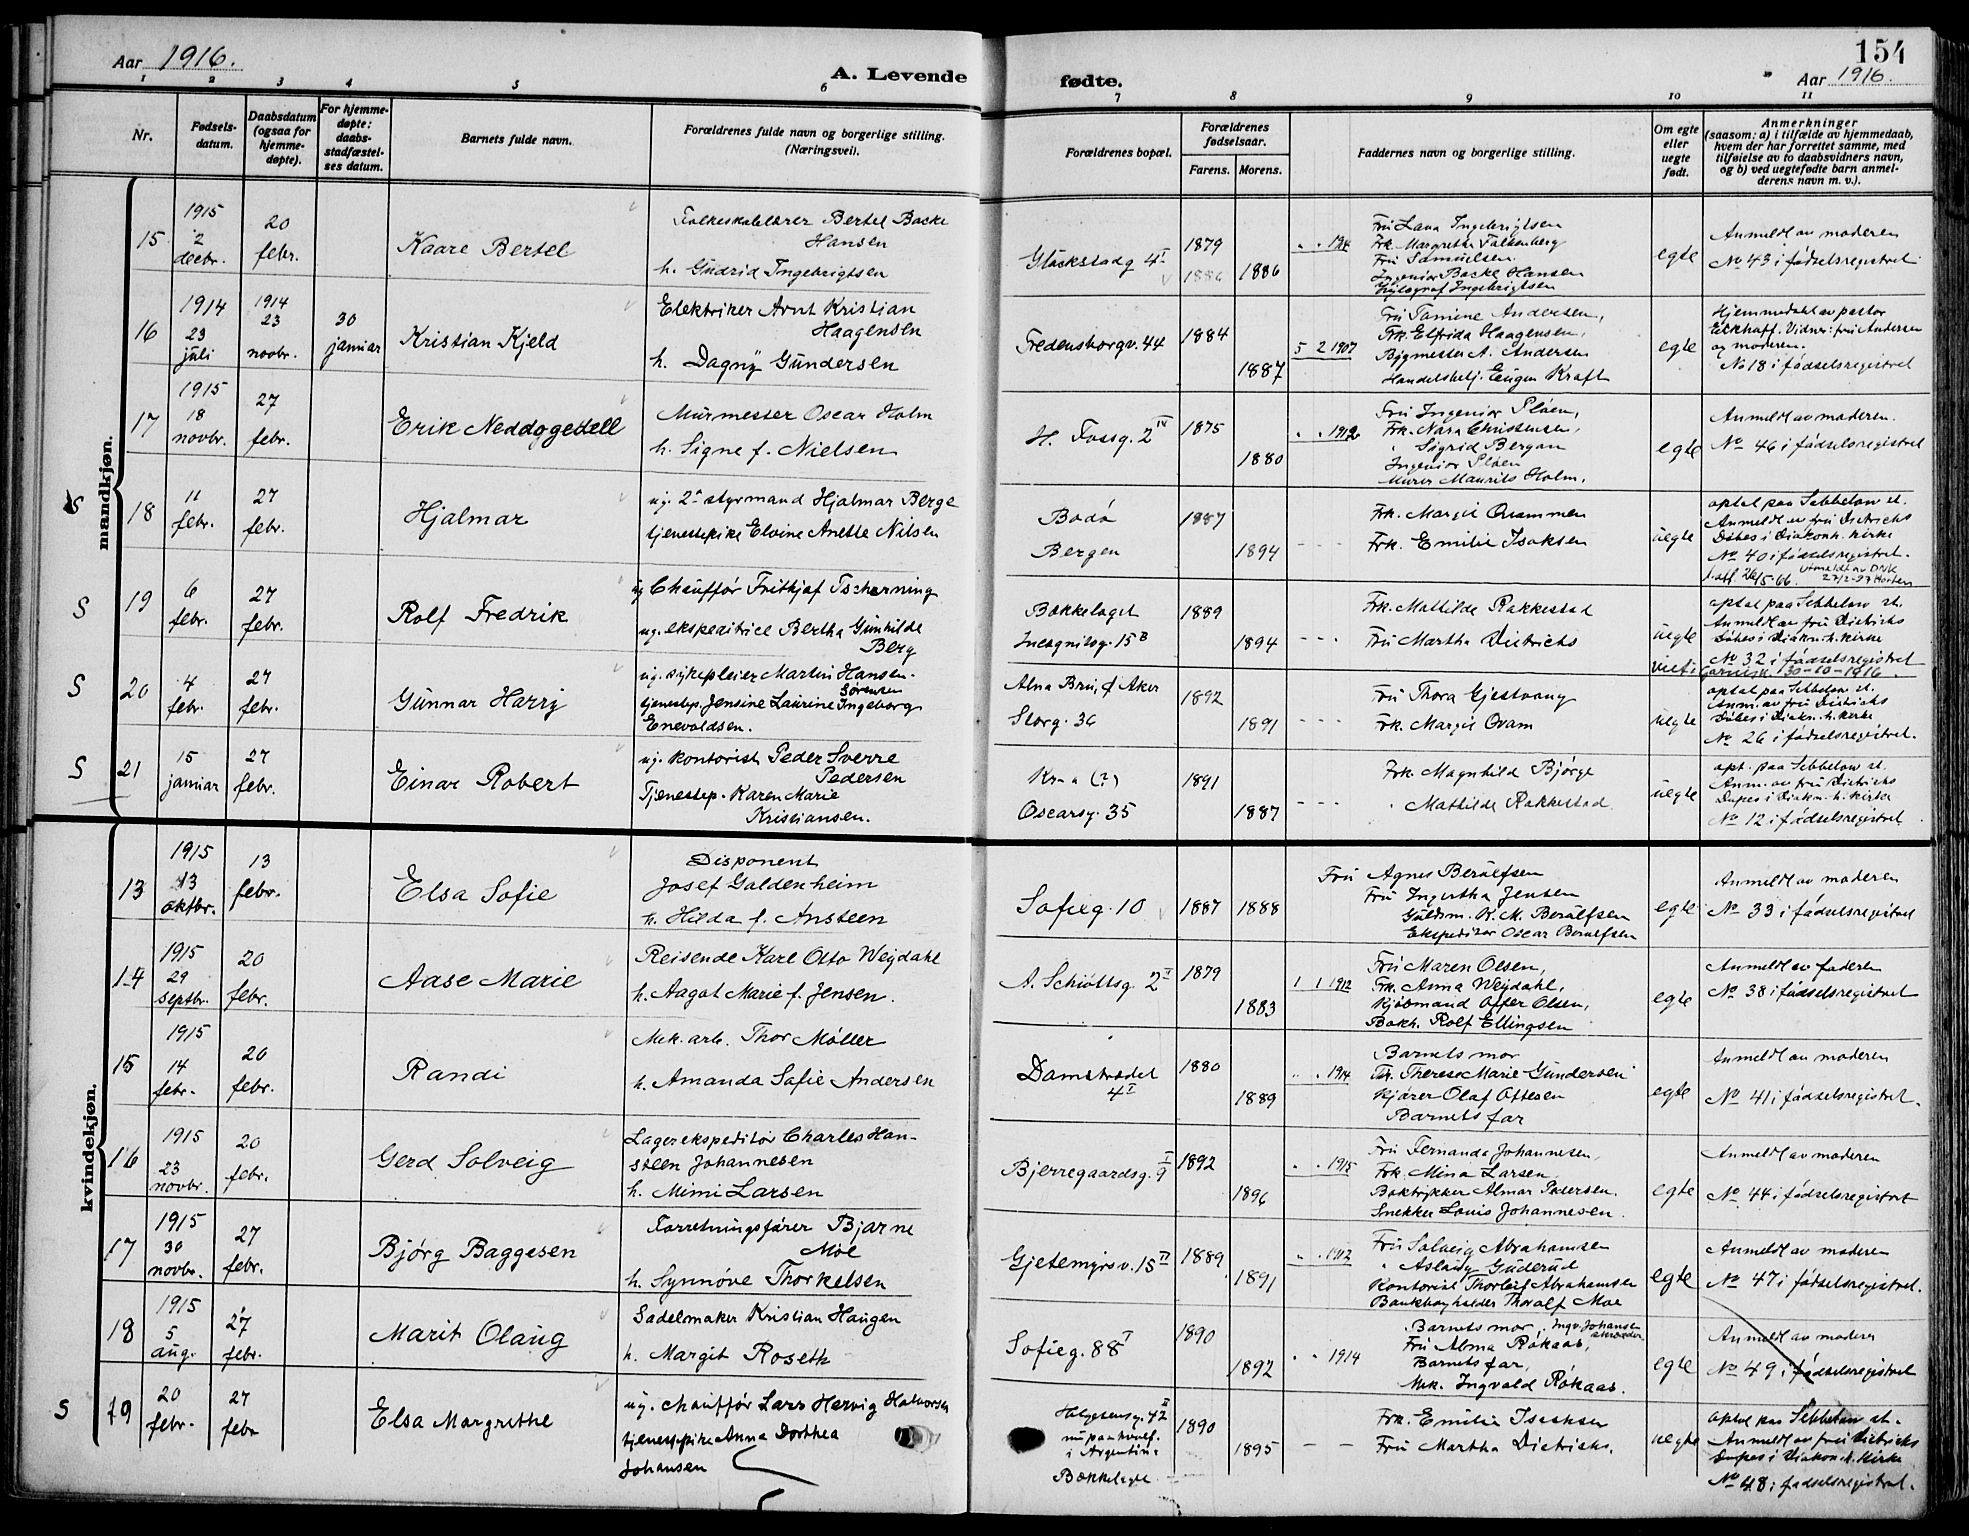 Aar 1916.
A. Levende
fødte.
154
Aar 1916.
1 2 3 4 5 6 7 8 9 10 11
Nr.
Fødsels-
datum.
Daabsdatum
(ogsaa for
hjemme-
døpte).
For hjemme-
døpte:
daabs-
stadfæstel-
ses datum.
Barnets fulde navn.
Forældrenes fulde navn og borgerlige stilling.
(Næringsvei).
Forældrenes bopæl.
Forældrenes
fødselsaar.
Farens. Morens.
Faddernes navn og borgerlige stilling.
Om egte
eller
uegte
født.
Anmerkninger
(saasom: a) i tilfælde av hjemmedaab,
hvem der har forrettet samme, med
tilføielse av to daabsvidners navn,
og b) ved uegtefødte barn anmel-
derens navn m. v.).
mandkjøn.
15
1915
2
decbr.
20
febr.
Kaare Bertel
Folkeskolelærer Bertel Backe
Hansen
h. Gudrid Ingebrigtsen
Glückstadg 4 I
1879
1886
1886
Fru Lava Ingebrigtsen
Frk. Margrethe Falkenberg
Fru Samuelsen
Ingeniør Backe Hansen
Ingebrigtsen
egte
Anmeldt av moderen
No 43 i fødselsregistret
16
1914
23
juli
1914
23
novbr.
30
januar
Kristian Kjeld
Elektriker Arnt Kristian
Haagensen
h. Dagny Gundersen
Fredensborgv. 44
1884
1887
5 2 1907
Fru Tomine Andersen,
Frk. Elfrida Haagensen,
Bygmester A. Andersen
Handelsbetj. Eugen Kraft
egte
Hjemmedøbt av pastor
Eckhoff. Vidner: fru Andersen
og moderen.
No 18 i fødselsregistret
17
1915
18
novbr.
27
febr.
Erik Neddggettell
Murmester Oscar Holm
h. Signe f. Nielsen
H. Fossg. 2 IV
1875
1880
1912
Fru Ingeniør Pløen,
Frk. Nora Christensen,
Sigrid Bergan
Ingeniør Pløen
Murer Maurits Holm.
egte
Anmeldt av moderen.
No 46 i fødselsregistret
S
18
11
febr.
27
febr.
Hjalmar
ug. 2n styrmand Hjalmar Berge
tjenestepike Elvine Anette Nilsen
Bodø
Bergen
1887
1894
Frk. Margit Qvammen
Frk. Emilie Isaksen
uegte
optat paa Sebbelow st.
Anmeldt av fru Dietrichs
Døbes i Diakonh. kirke
No 40 i fødselsregistret.
S
19
6
febr.
27
febr.
Rolf Fredrik
ug Chauffør Frithjof Tscherning
ug. ekspeditrice Bertha Gunhilde
Berg
Bækkelaget
Incognitog. 15 B
1889
1894
Frk. Mathilde Rakkestad
Fru Martha Dietrichs
uegte
optat paa Sebbelow st.
Anmeldt av fru Dietrichs
Døbes i Diakn. h. kirke
No 32 i fødselsregistret
30-10-1916.
S
20
4
febr.
27
febr.
Gunnar Harry
ug. sykepleier Martin Hansen.
Sørensen
tjenestep. Jensine Laurine Ingeborg
Enevoldsen.
Alna Bru, Ø Aker
Storg. 36
1892
1891
Fru Thora Gjestvang
Frk. Margit Qvam
uegte
optat paa Sebbelow st.
Anm. av fru Dietrichs
Døbes i Diakn. h. kirke
No 26 i fødselsregistret.
S
21
15
januar
27
febr.
Einar Robert
ug. kontorist Peder Sverre
Pedersen
Tjenestep. Karen Marie
Kristiansen.
Kr-a (?)
Oscarsg. 35
1891
1887
Frk. Magnhild Bjørge
Mathilde Rakkestad
uegte
opt. paa Sebbelow st.
Anm. av fru Dietrichs
Døpes i Diakn. h. kirke
No 12 i fødselsregistret
kvindekjøn.
13
1915
13
oktbr.
13
febr.
Elsa Sofie
Disponent
Josef Goldenheim
h. Hilda f. Ansteen
Sofieg. 10
1887
1888
Fru Agnes Berulfsen
Fru Ingertha Jensen
Guldsm. K. M. Berulfsen
Ekspeditør Oscar Berulfsen
egte
Anmeldt av moderen
No 33 i fødselsregistret
14
1915
29
septbr.
20
febr.
Aase Marie
Reisende Karl Otto Weydahl
h. Aagot Marie f. Jensen.
A. Schiøttsg. 2 II
1879
1883
1 1 1912
Fru Maren Olsen,
Frk. Anna Weydahl,
Kjøbmand Olsen,
Bokh. Rolf Ellingsen
egte
Anmeldt av faderen
No 38 i fødselsregistret
15
1915
14
febr.
20
febr.
Randi
Mek. arb. Thor Møller
h. Amanda Sofie Andersen
Damstrædet
4 I
1880
1889
1914
Barnets mor
Fr. Therese Marie Gundersen
Kjører Olaf Ottesen
Barnets far
egte
Anmeldt av moderen
No 41 i fødselsregistret.
16
1915
23
novbr.
20
febr.
Gerd Solveig
Lagerekspeditør Charles Han-
steen Johannesen
h. Mimi Larsen
Bjerregaardsg. 9 I
1892
1896
1915
Fru Fernanda Johannesen,
Frk. Mina Larsen
Boktrykker Almar Pedersen.
Snekker Louis Johannesen.
egte
Anmeldt av moderen
No 44 i fødselsregistret
17
1915
30
novbr.
27
febr.
Bjørg Baggesen
Forretningsfører Bjarne
Moe
h. Synnøve Thorkelsen
Gjetemyrsv. 15 II
1889
1891
1912
Fru Solveig Abrahamsen
Aslaug Guderud
Kontorist Thorleif Abrahamsen
Bankbogholder Thoralf Moe
egte
Anmeldt av moderen
No 47 i fødselsregistret.
18
1915
5
aug.
27
febr.
Marit Olaug
Sadelmaker Kristian Haugen
h. Margit Roseth
Sofieg. 88 I
1890
1892
1914
Barnets mor, Ingv. Johansen
skrædder
Fru Alma Røkaas,
Barnets far,
Mek. Ingvald Røkaas.
egte
Anmeldt av moder
No 49 i fødselsregistret
S
19
20
febr.
27
febr
Elsa Margrethe
ug. chauffør Lars Hervig Halvorsen
tjenestepike Anna Dorthea
Johansen
Helgesensg. 42 II
nu paa hvalf.
i Argentina
Bækkelagte
1890
1895
Frk. Emilie Isachsen
Fru Martha Dietrichs.
uegte
optat paa Sebbelow st.
Anmeldt av fru Dietrichs
Døpes i Diakon. h. kirke
No 48 i fødselsregistret.